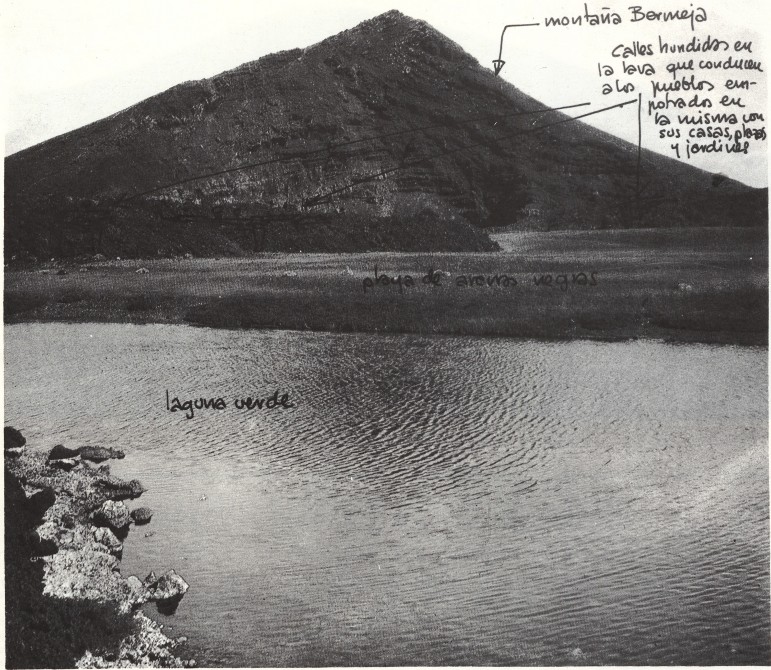 montaña Bermeja
Calles hundidas en
la lava que conducen
a los pueblos em-
potrados en
la misma con
sus casas, plazas
y jardines
playa de arenas negras
laguna verde